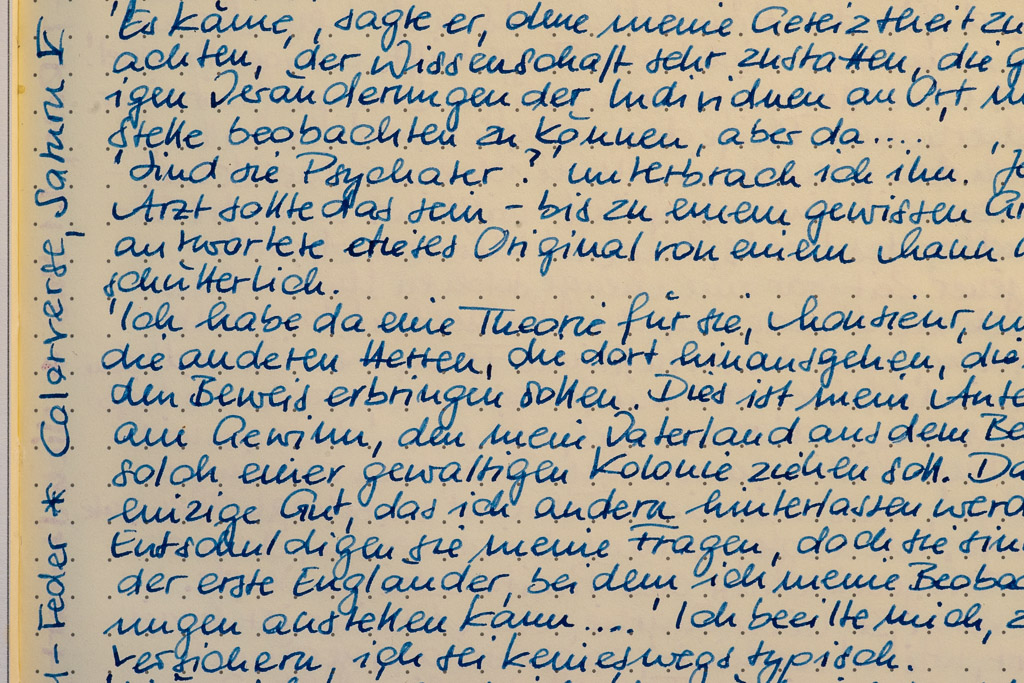 'Es käme, sagte er, ohne meine Gereiztheit zu
achten, 'der Wissenschaft sehr zustatten, die g
igen Veränderungen der Individuen an Ort u
stelle beobachten zu können, aber da.....'
'Sind sie Psychater?' unterbrach ich ihn. 'Je
Arzt sollte das sein – bis zu einem gewissen Gr
antwortete dieses Original von einem Mann
schütterlich.
'Ich habe da eine Theorie für sie, Monsieur, un
die anderen Herren, die dort hinausgehen, die
den Beweis erbringen sollen. Dies ist mein Ante
am Gewinn, den mein Vaterland aus dem Be
solch einer gewaltigen Kolonie ziehen soll. Da
einzige Gut, das ich andern hinterlassen werd
Entschuldigen sie meine Fragen, doch sie sin
der erste Engländer, bei dem ich meine Beobac
nungen anstellen kann....' Ich beeilte mich, z
versichern, ich sei keineswegs typisch.
- Feder * Colorverse, Saturn V